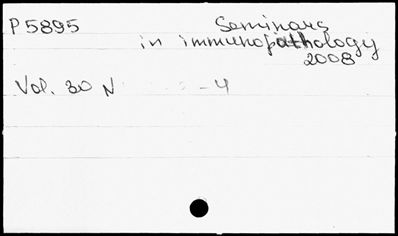 P5895 Seminars
in immunopathology
2008
Vol. 30 N -4